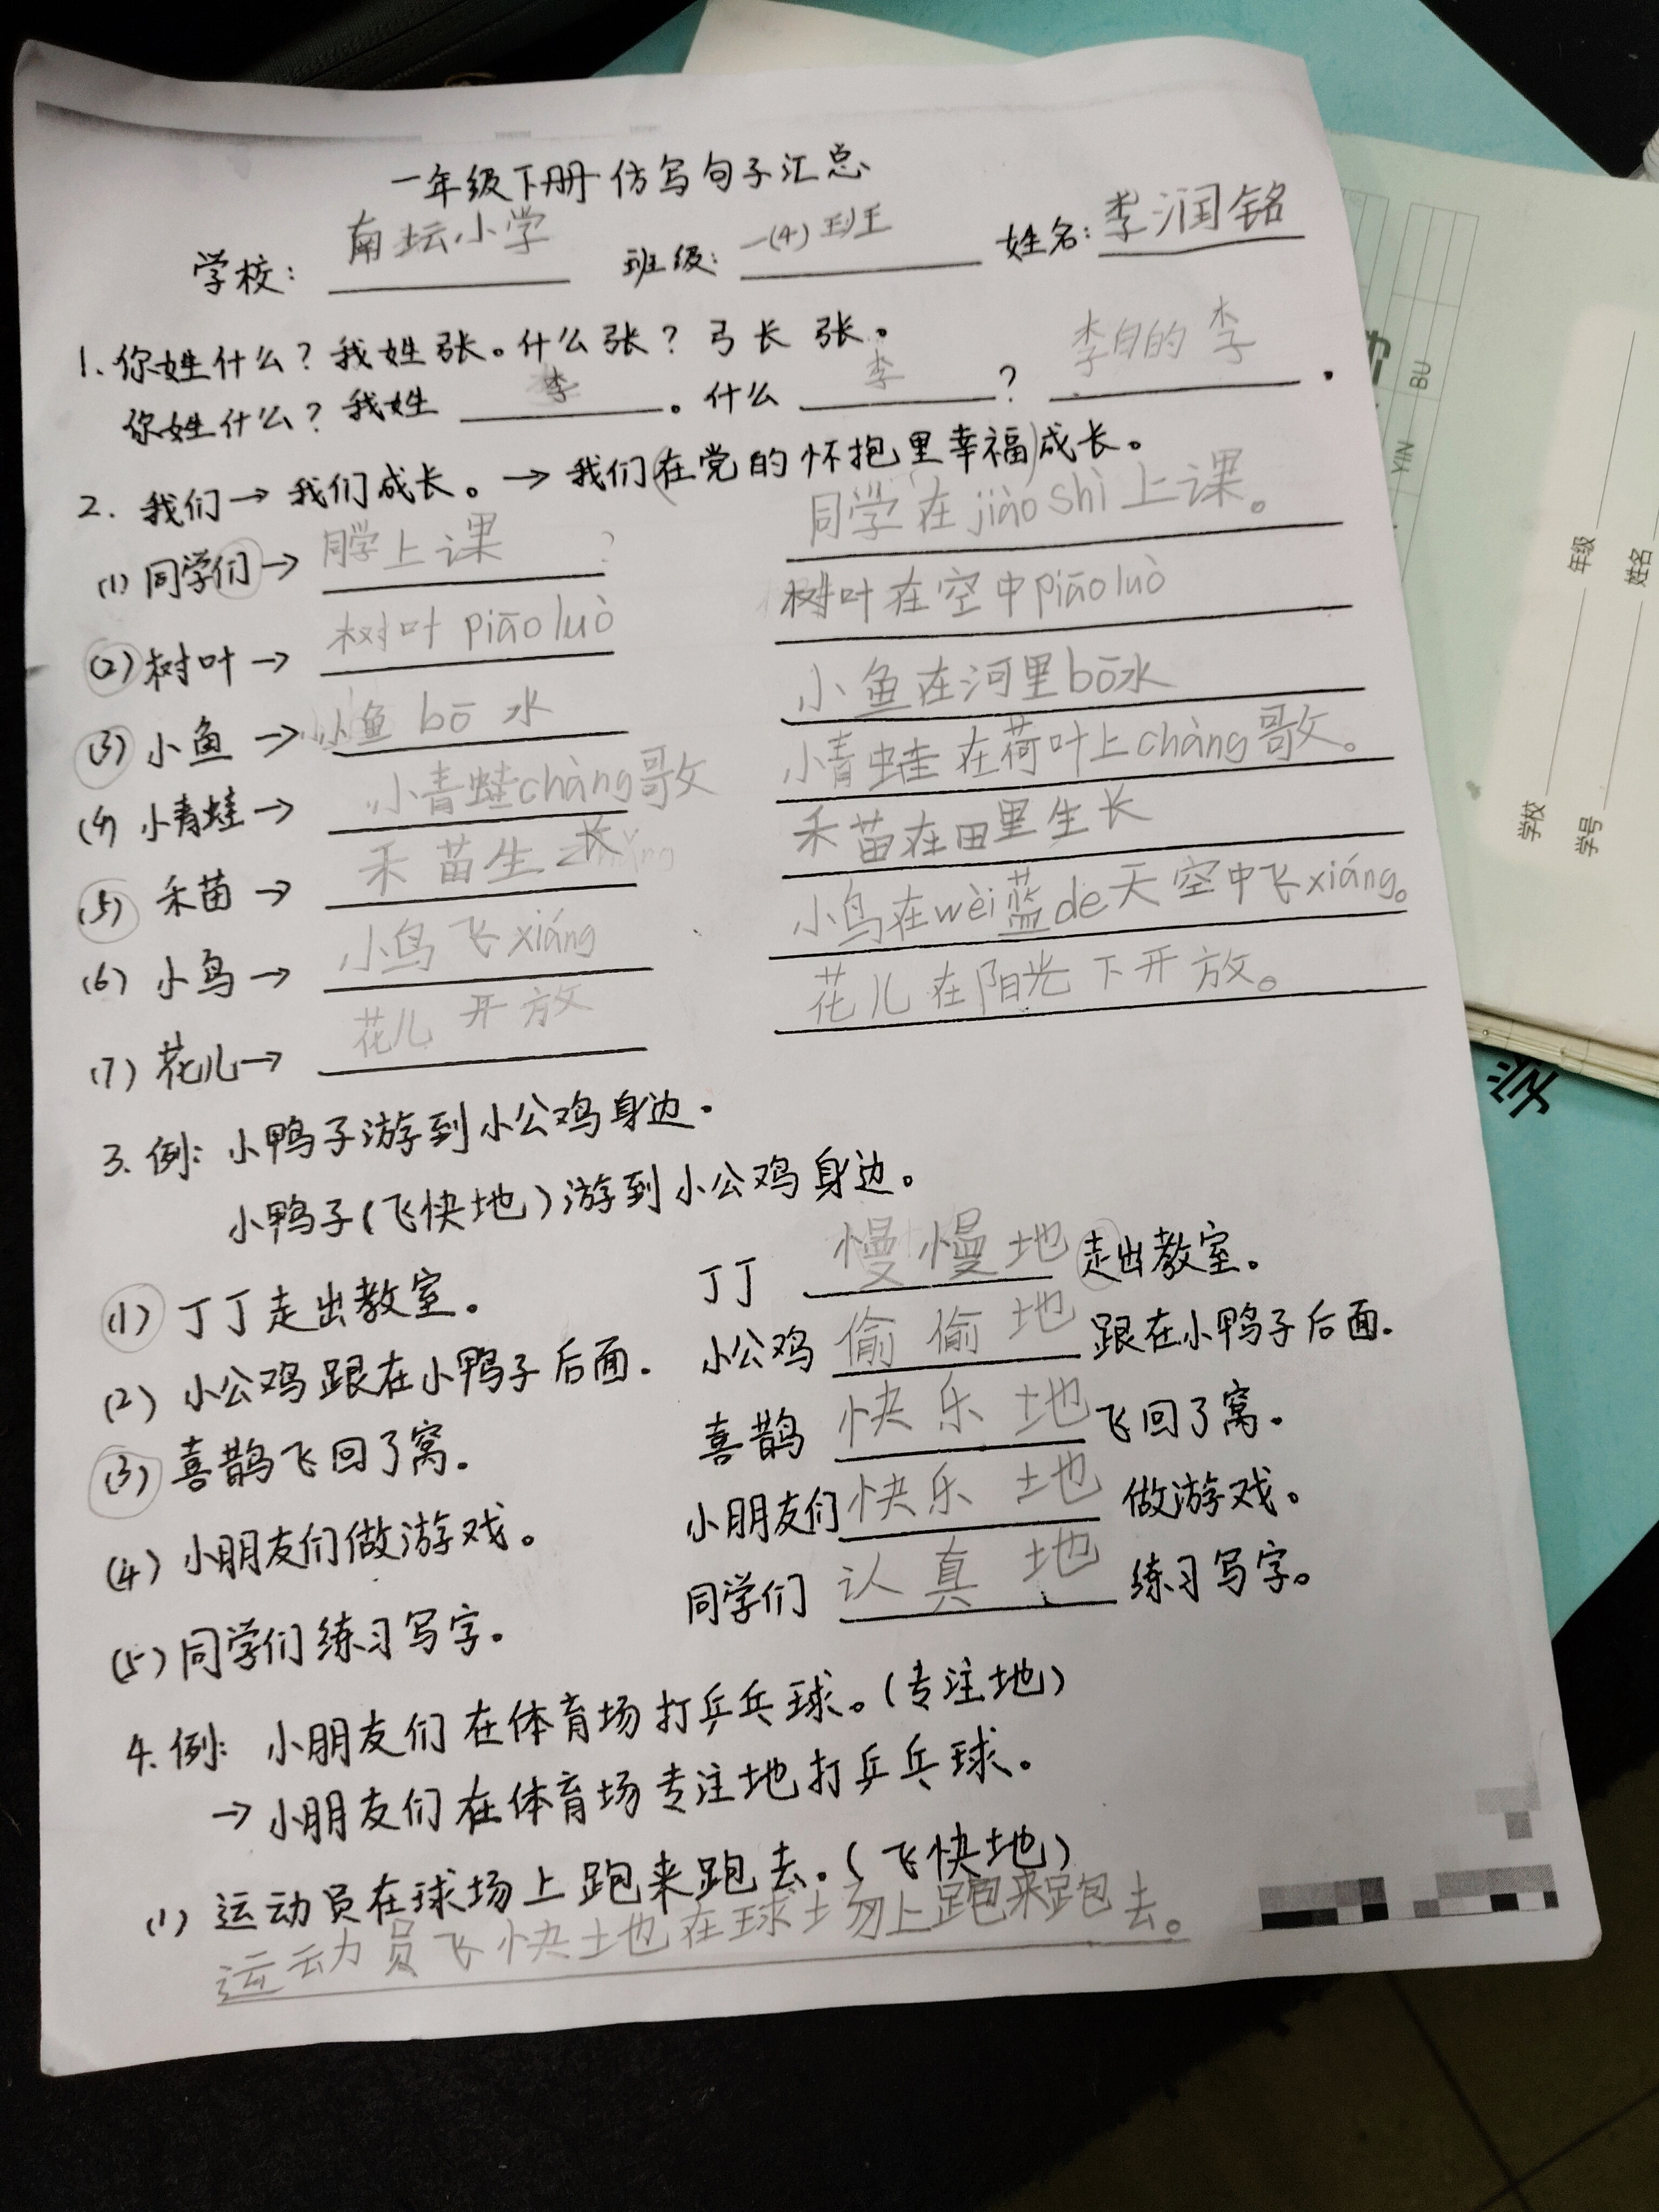 一年级下册仿写句子汇总
学校：南坛小学 班级：一(4)班 姓名：李润铭
1. 你姓什么？我姓张。什么张？弓长张。
你姓什么？我姓 李 。什么 李 ？ 李白的李 .
2. 我们→我们成长。→我们(在党的怀抱里幸福)成长。
(1) 同学们→ 同学上课 同学在jiào shì上课。
(2) 树叶→ 树叶piāo luò 树叶在空中piāo luò
(3) 小鱼→ 小鱼bō水 小鱼在河里bō水
(4) 小青蛙→ 小青蛙chàng歌 小青蛙在荷叶上chàng歌。
(5) 禾苗→ 禾苗生长 禾苗在田里生长
(6) 小鸟→ 小鸟飞xiáng 小鸟在wèi蓝de天空中飞xiáng。
(7) 花儿→ 花儿开放 花儿在阳光下开放。
3. 例：小鸭子游到小公鸡身边.
小鸭子(飞快地)游到小公鸡身边。
(1) 丁丁走出教室。 丁丁 慢慢地 走出教室。
(2) 小公鸡跟在小鸭子后面. 小公鸡 偷偷地 跟在小鸭子后面.
(3) 喜鹊飞回了窝. 喜鹊 快乐地 飞回了窝.
(4) 小朋友们做游戏。 小朋友们 快乐地 做游戏。
(5) 同学们练习写字. 同学们 认真地 练习写字。
4. 例：小朋友们在体育场打乒乓球。(专注地)
→小朋友们在体育场专注地打乒乓球.
(1) 运动员在球场上跑来跑去.(飞快地)
运动员飞快地在球场上跑来跑去。
BU
YIN
学校
年级
学号
姓名
学